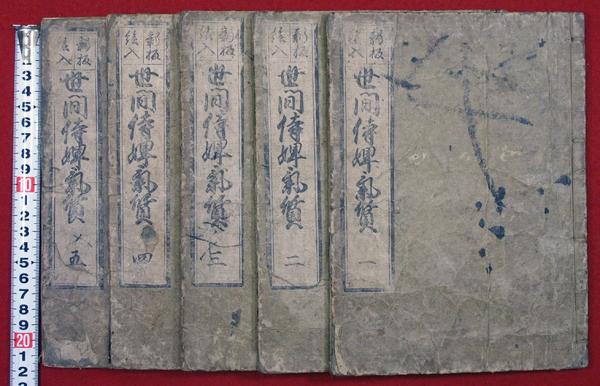 新板
絵入
世間侍婢気質 一
新板
絵入
世間侍婢気質 二
新板
絵入
世間侍婢気質 三
新板
絵入
世間侍婢気質 四
新板
絵入
世間侍婢気質 五
3
4
5
6
7
8
9
10
1
2
3
4
5
6
7
8
9
20
1
2